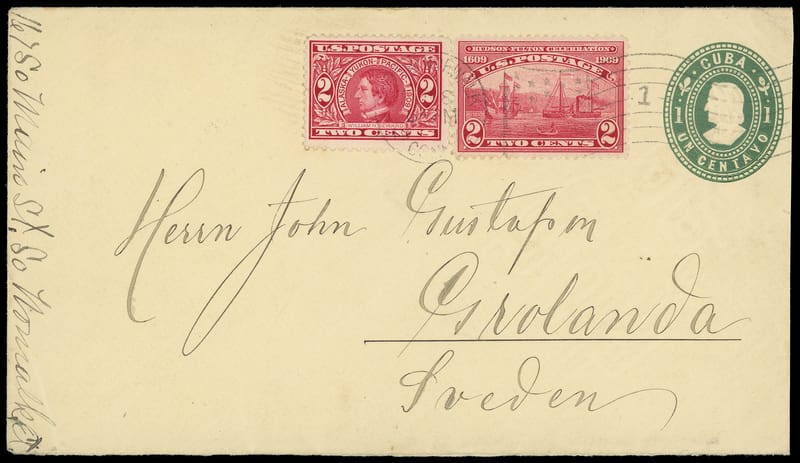 167 So Main St, So Norwalk Ct
U.S. POSTAGE
ALASKA YUKON PACIFIC 1909
WILLIAM H. SEWARD
2 2
TWO CENTS
HUDSON-FULTON CELEBRATION
1609 1909
U.S. POSTAGE
2 2
TWO CENTS
CONN
1
CUBA
1 1
UN CENTAVO
Herrn John Gustafson
Grolanda
Sveden